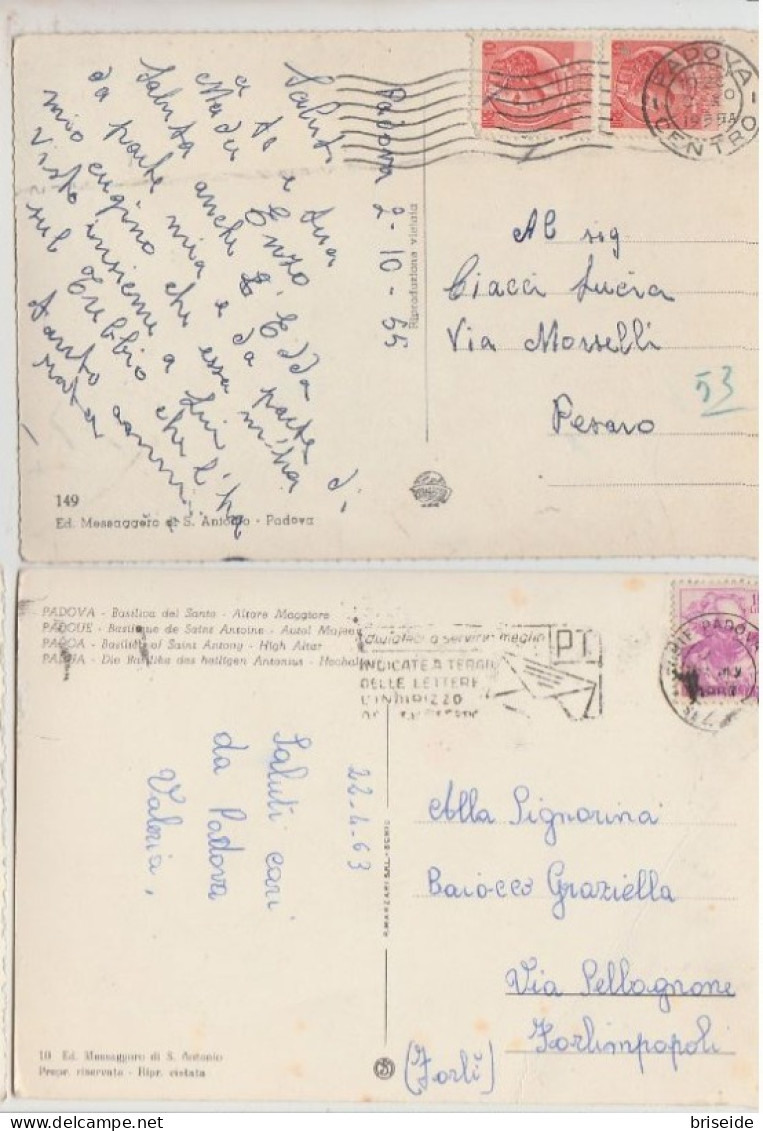 PADOVA
CENTRO
Padova 2-10-55
Saluti
a te e tua
Madre Enzo
Saluta anche l'Edda
da parte mia e da parte di
mio cugino che essa m'ha
visto insieme a lui
sul Trebbio che l'ha
tanto
Riproduzione vietata
Al sig
Ciacci Lucia
Via Morselli
Pesaro
53
149
Ed. Messaggero di S. Antonio - Padova
PADOVA - Basilica del Santo - Altare Maggiore
PADOUE - Basilique de Saint Antoine - Autel Majeur
PADUA - Basilica of Saint Antony - High Altar
PADUA - Die Basilika des heiligen Antonius -
aiutateci a servirvi meglio
PT
INDICATE A TERGO
DELLE LETTERE
L'INDIRIZZO
PADOVA
22-4-63
Saluti cari
da Padova
Valeria,
Alla Signorina
Baiocco Graziella
Via Pellagnone
Forlimpopoli
(Forlì)
10 Ed. Messaggero di S. Antonio
Propr. riservata - Ripr. vietata
briseide